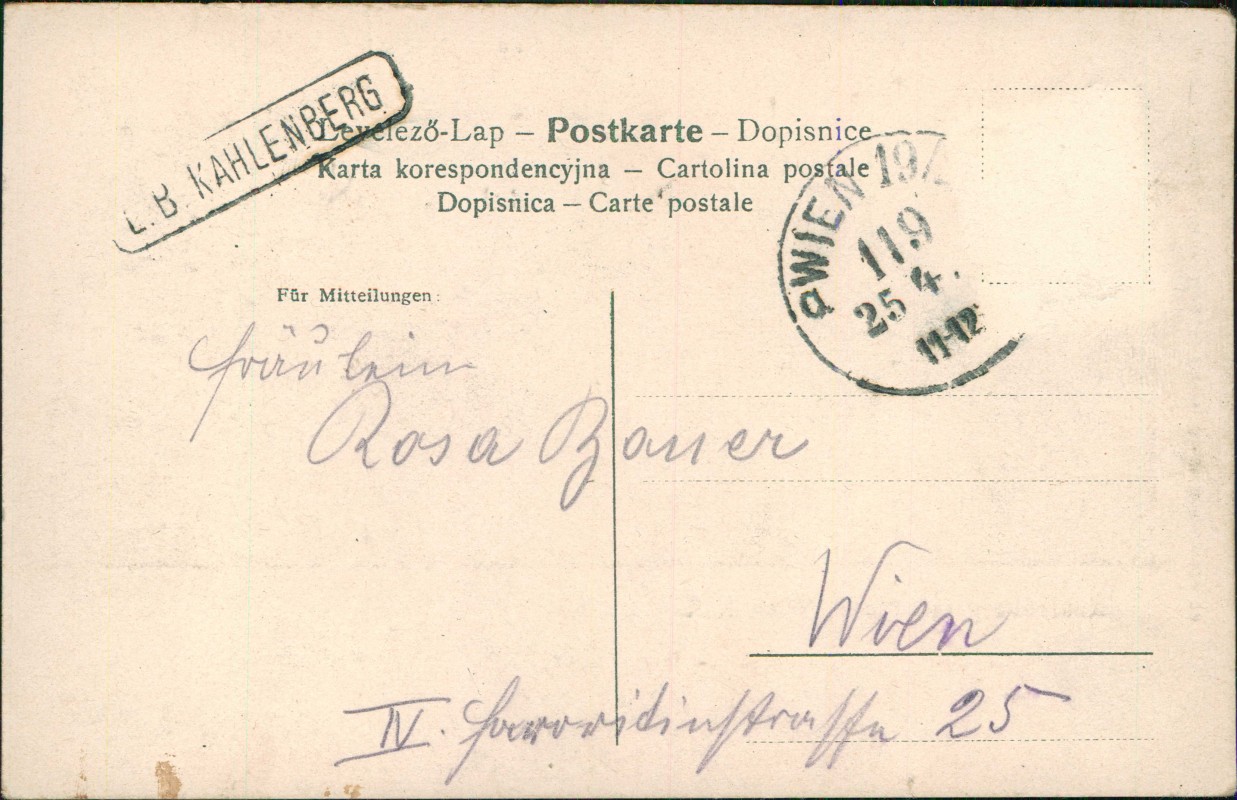 L.B. KAHLENBERG
Levelező-Lap – Postkarte – Dopisnice
Karta korespondencyjna – Cartolina postale
Dopisnica – Carte postale
WIEN 19/
119
25 4.
11-12
Für Mitteilungen:
Fräulein
Rosa Bauer
Wien
IV. Favoritinstrasse 25